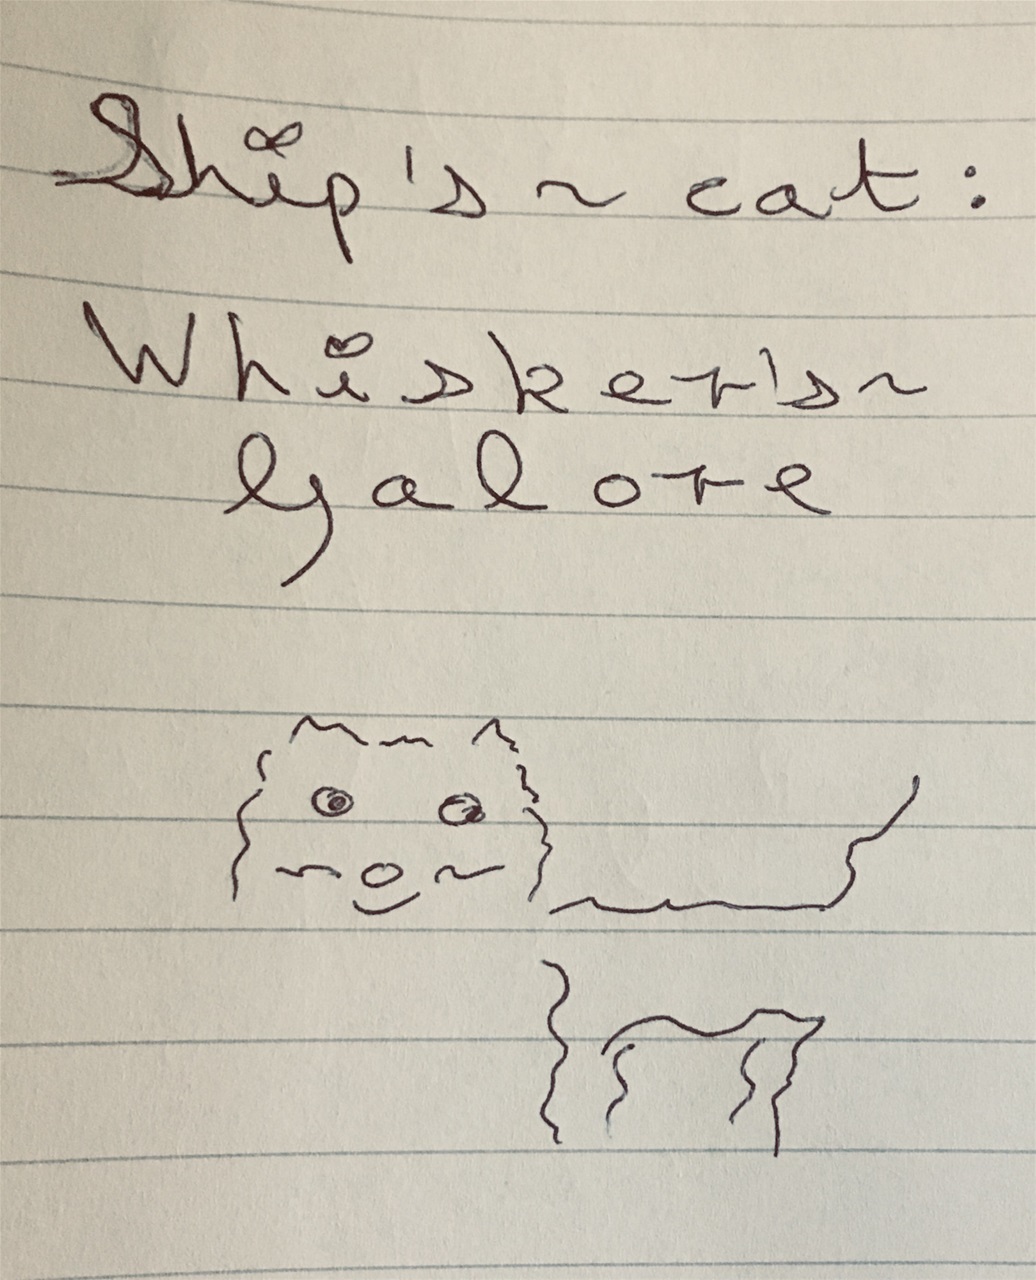 Ship's ~ cat:
Whisker's ~
Galore